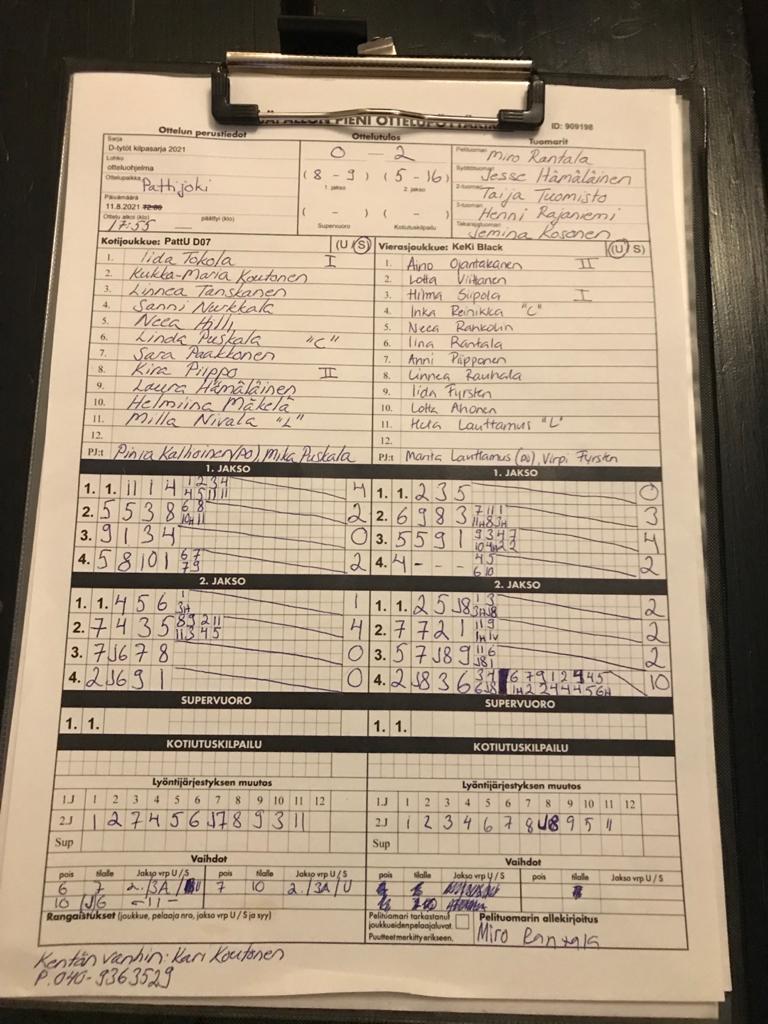 PALLON PIENI OTTELUPÖYTÄKIRJA
ID: 909198
Ottelun perustiedot
Ottelutulos
Tuomarit
Sarja
D-tytöt kilpasarja 2021
Lohko
otteluohjelma
Ottelupaikka Pattijoki
Päivämäärä
11.8.2021
Ottelu alkoi (klo) päättyi (klo)
17:55
0 - 2
(8 - 9) (5 - 16)
1. jakso 2. jakso
( - ) ( - )
Supervuoro Kotiutuskilpailu
Pelituomari Miro Rantala
Syöttötuomari Jesse Hämäläinen
2-tuomari Taija Tuomisto
3-tuomari Henni Rajaniemi
Takarajatuomari Jemina Kosonen
Kotijoukkue: PattU D07 (U / S)
1. Iida Tokola I
2. Kukka-Maria Koutonen
3. Linnea Tanskanen
4. Sanni Nurkkala
5. Neea Hilli
6. Linda Puskala "C"
7. Sara Paakkonen
8. Kira Piippo II
9. Laura Hämäläinen
10. Helmiina Mäkelä
11. Milla Nivala "L"
12.
PJ:t Pinja Kalhoinen (PO), Mika Puskala
Vierasjoukkue: KeKi Black (U / S)
1. Aino Ojantakanen II
2. Lotta Viitanen
3. Hilma Siipola I
4. Inka Reinikka "C"
5. Neea Rankolin
6. Iina Rantala
7. Anni Piipponen
8. Linnea Rauhala
9. Iida Fyrsten
10. Lotta Ahonen
11. Hela Lauttamus "L"
12.
PJ:t Manta Lauttamus (PJ), Virpi Fyrsten
1. JAKSO
1. 1. 11 1 4 4
2. 5 5 3 8 2
3. 9 1 3 4 0
4. 5 8 10 1 2
1. JAKSO
1. 1. 2 3 5 0
2. 6 9 8 3 3
3. 5 5 9 1 4
4. 4 - - - 2
2. JAKSO
1. 1. 4 5 6 1
2. 7 4 3 5 4
3. 7 J6 7 8 0
4. 2 J6 9 1 0
2. JAKSO
1. 1. 2 5 J8 2
2. 7 7 2 1 2
3. 5 7 J8 9 2
4. 2 J8 3 6 10
SUPERVUORO
1. 1.
SUPERVUORO
1. 1.
KOTIUTUSKILPAILU
KOTIUTUSKILPAILU
Lyöntijärjestyksen muutos
1.J 1 2 3 4 5 6 7 8 9 10 11 12
2.J 1 2 7 4 5 6 J7 8 9 3 11
Sup
Lyöntijärjestyksen muutos
1.J 1 2 3 4 5 6 7 8 9 10 11 12
2.J 1 2 3 4 6 7 8 J8 9 5 11
Sup
Vaihdot
pois tilalle Jakso vrp U / S pois tilalle Jakso vrp U / S
6 7 2./3A/U 7 10 2./3A/U
10 J6 -11-
Vaihdot
pois tilalle Jakso vrp U / S pois tilalle Jakso vrp U / S
Rangaistukset (joukkue, pelaaja nro, jakso vrp U / S ja syy)
Pelituomari tarkastanut
joukkueiden pelaajaluvat.
Puutteet merkitty erikseen.
Pelituomarin allekirjoitus
Miro Rantala
Kentän vanhin: Kari Koutonen
P. 040-9363529